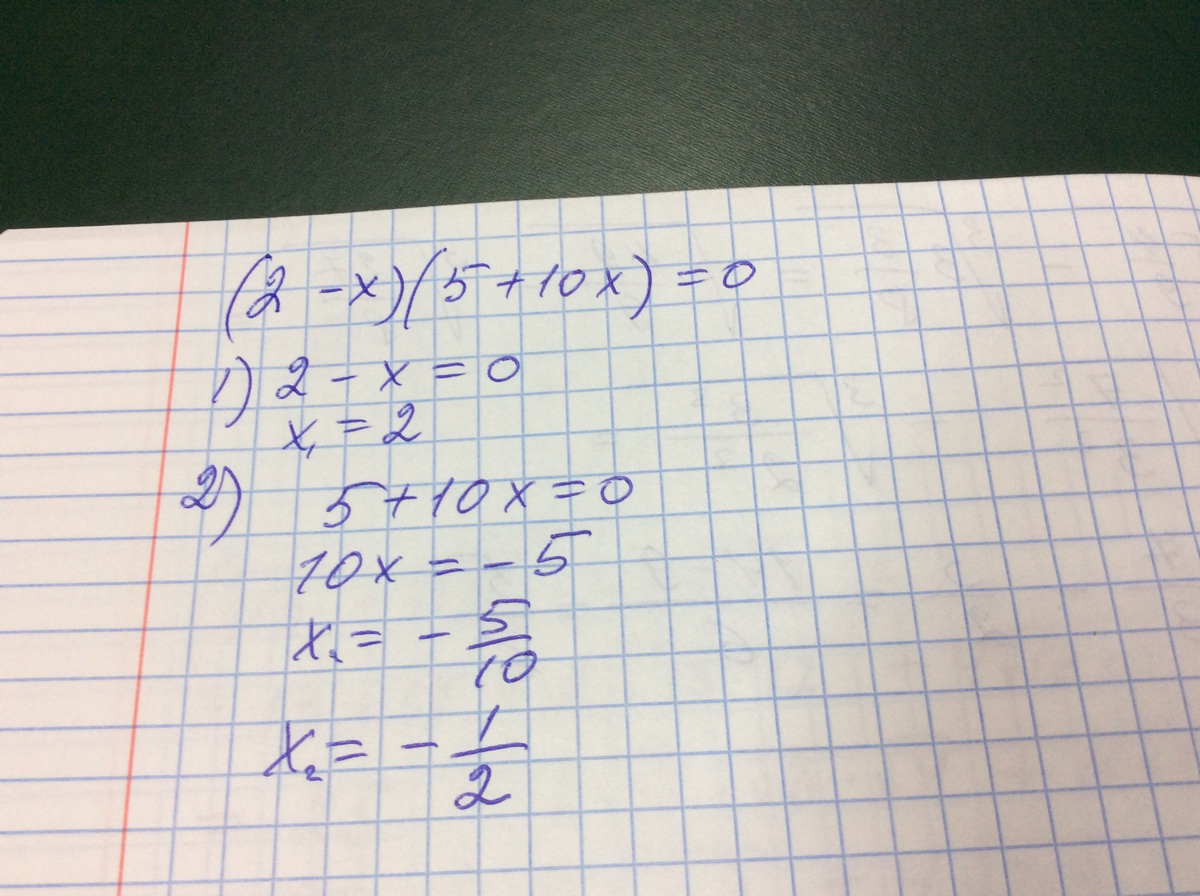 (2 - x)(5 + 10x) = 0
1) 2 - x = 0
x₁ = 2
2) 5 + 10x = 0
10x = - 5
x₂ = - 5/10
x₂ = - 1/2